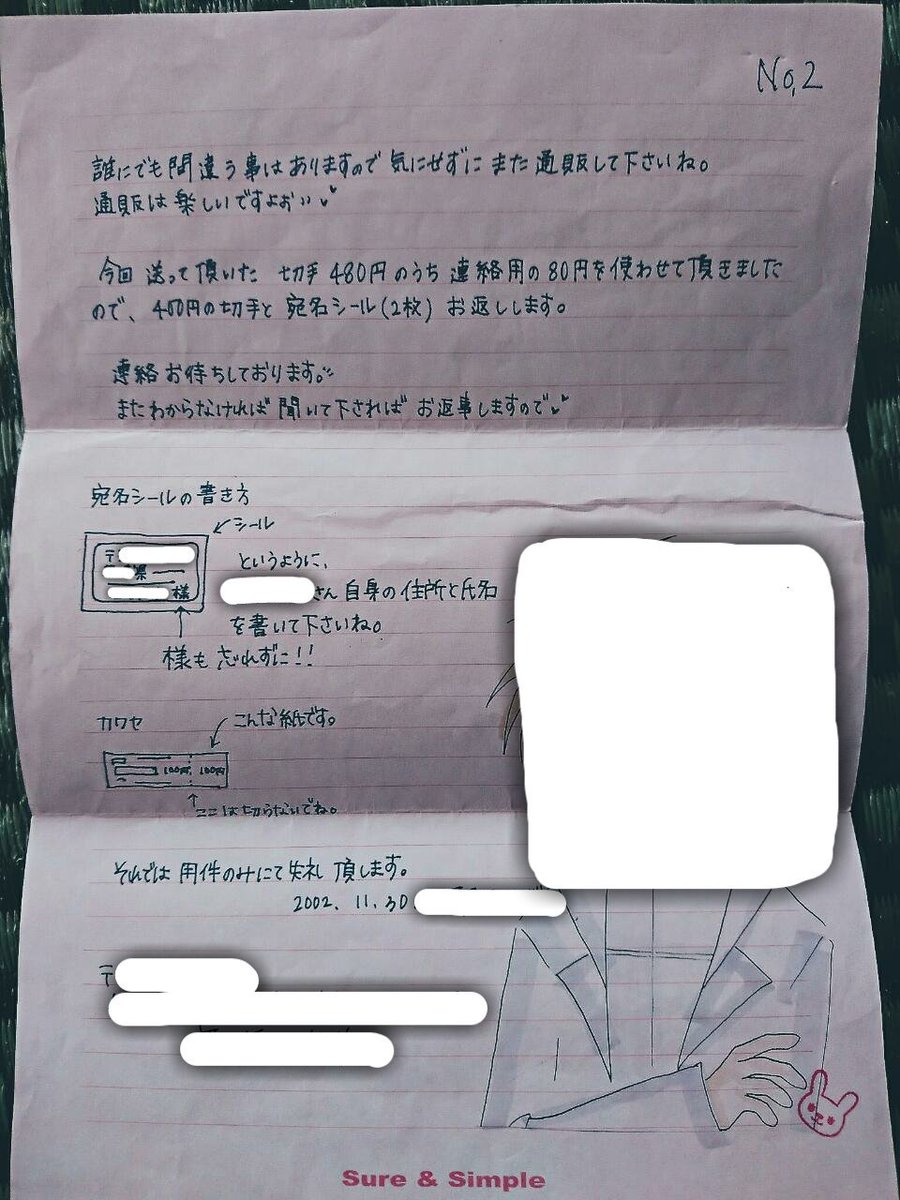 No,2
誰にでも間違う事はありますので 気にせずに また 通販して下さいね。
通販は楽しいですよぉ
今回 送って頂いた 切手 480円のうち 連絡用の80円を使わせて頂きました
ので、400円の切手と 宛名シール(2枚) お返しします。
連絡お待ちしております。
またわからなければ 聞いて下されば お返事しますので
宛名シールの書き方
シール
〒
県
様
というように、
さん自身の住所と氏名
を書いて下さいね。
様も忘れずに!!
カワセ
こんな紙です。
100円 100円
ここは切らないでね。
それでは 用件のみにて失礼 頂します。
2002. 11. 30
〒
Sure & Simple